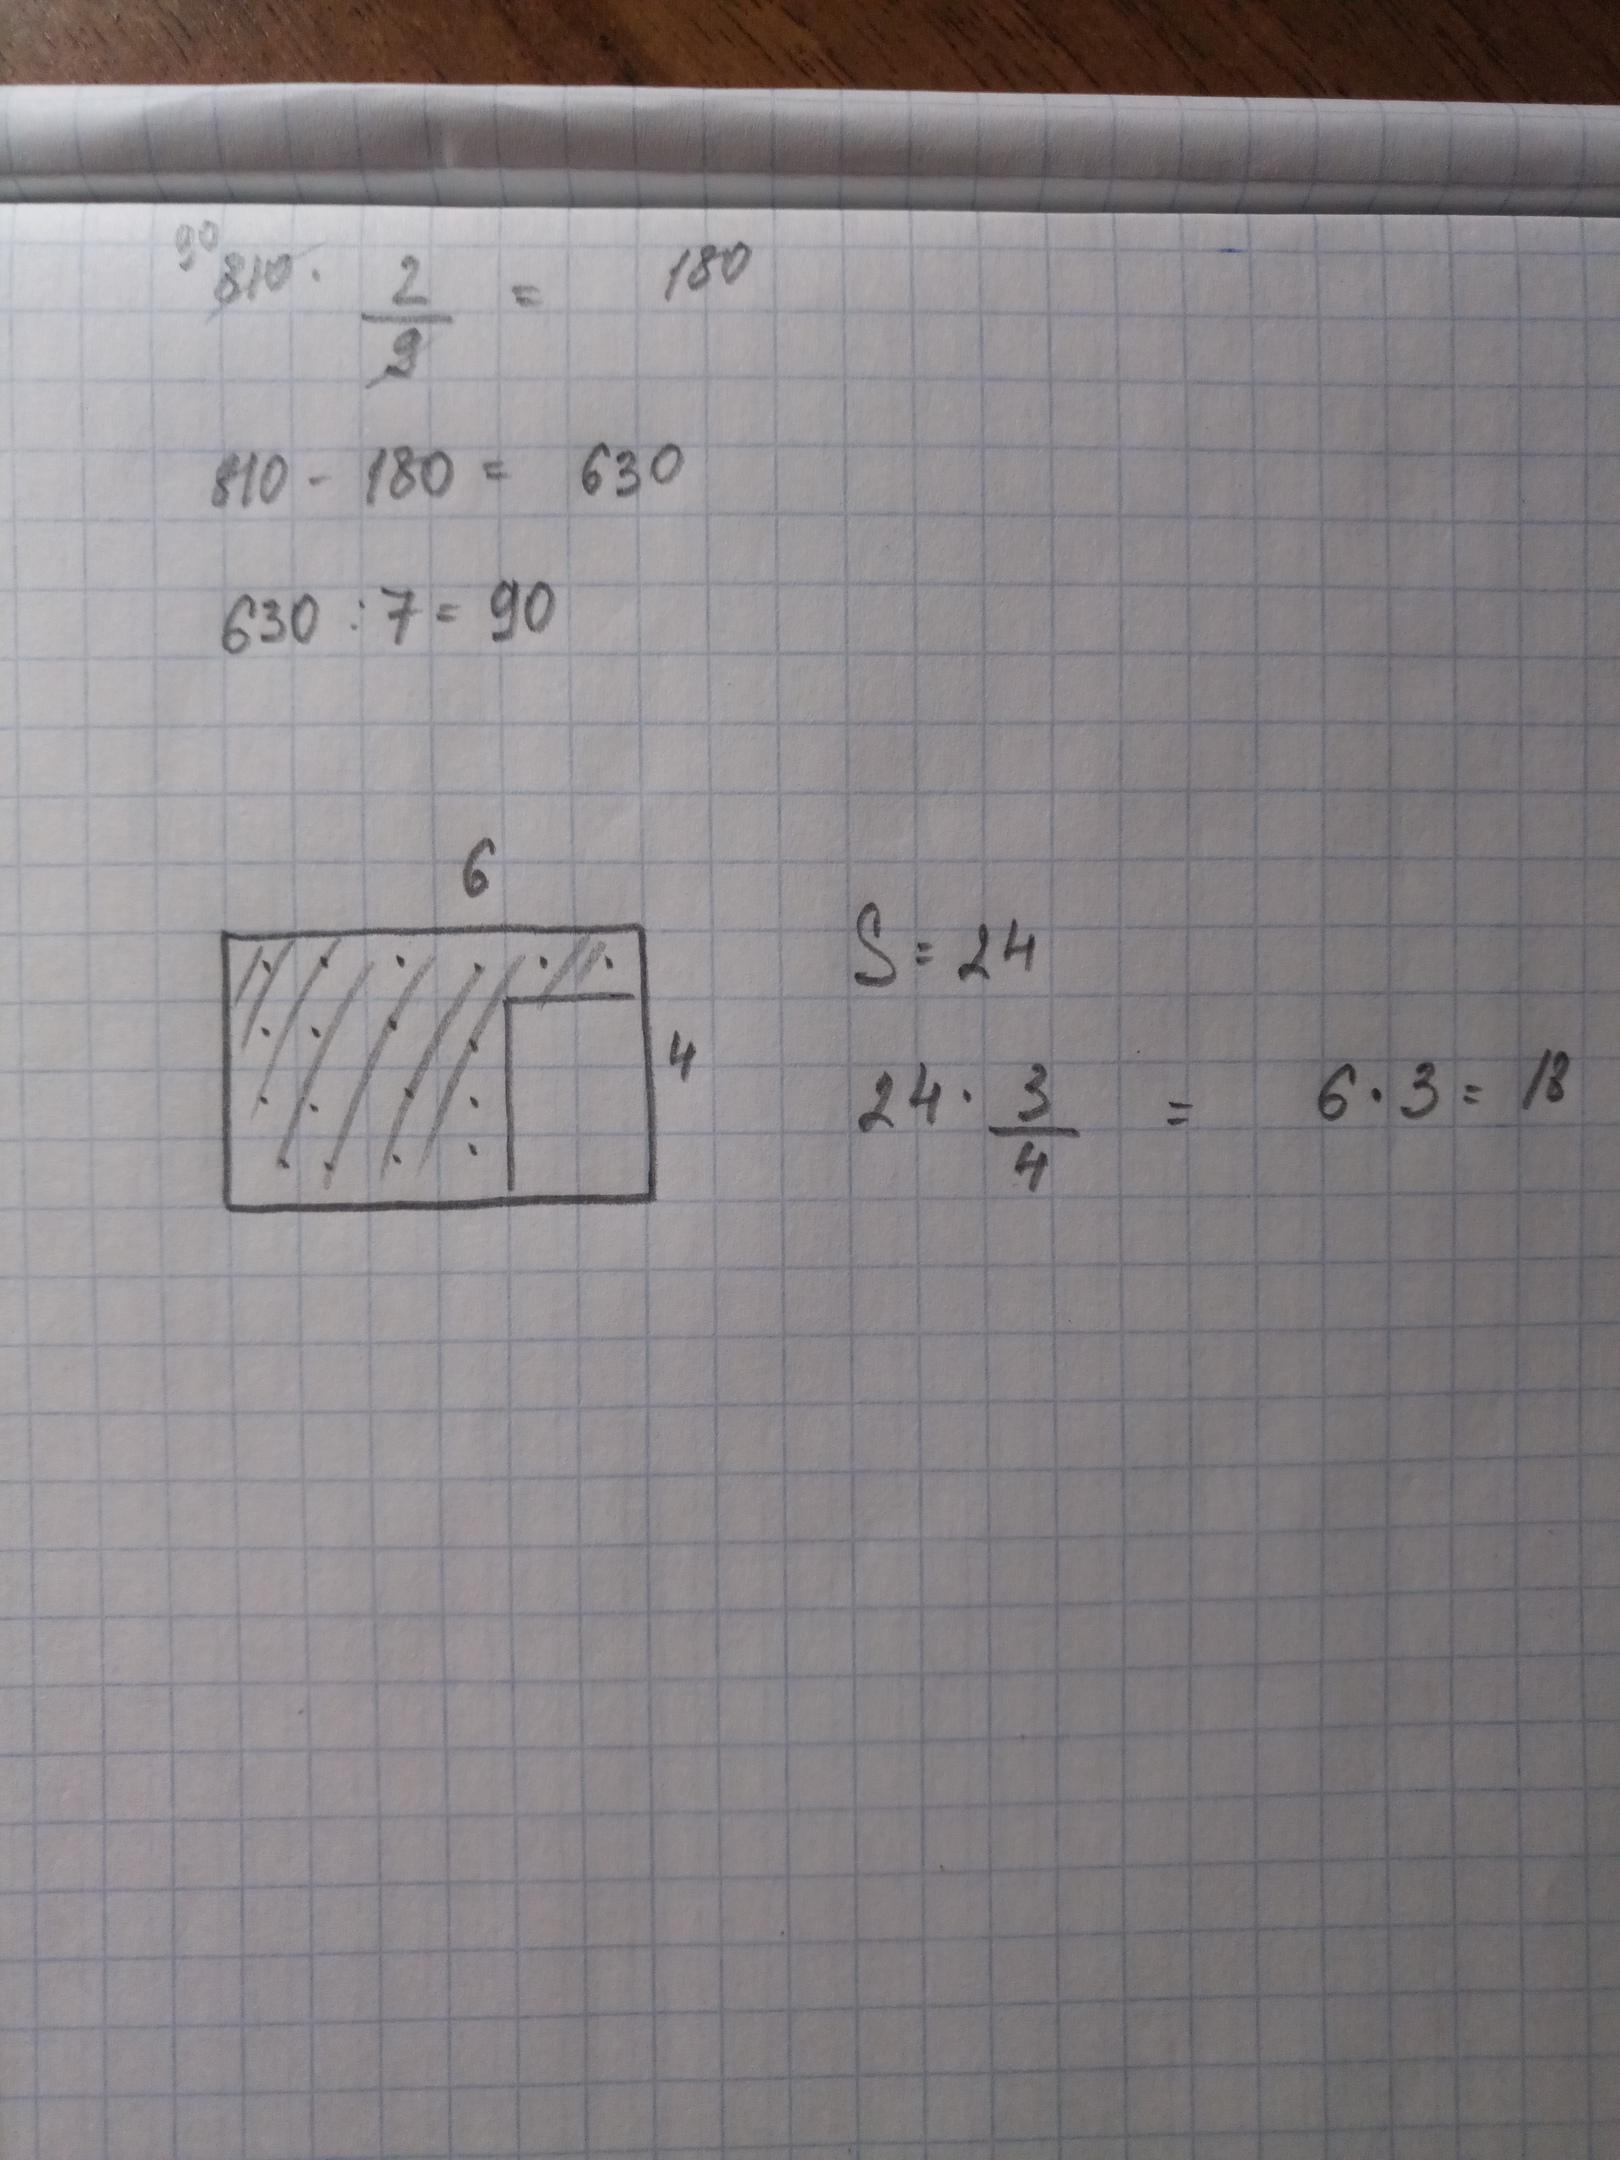 90
810 · 2/9 = 180
810 - 180 = 630
630 : 7 = 90
6
4
S = 24
24 · 3/4 = 6 · 3 = 18